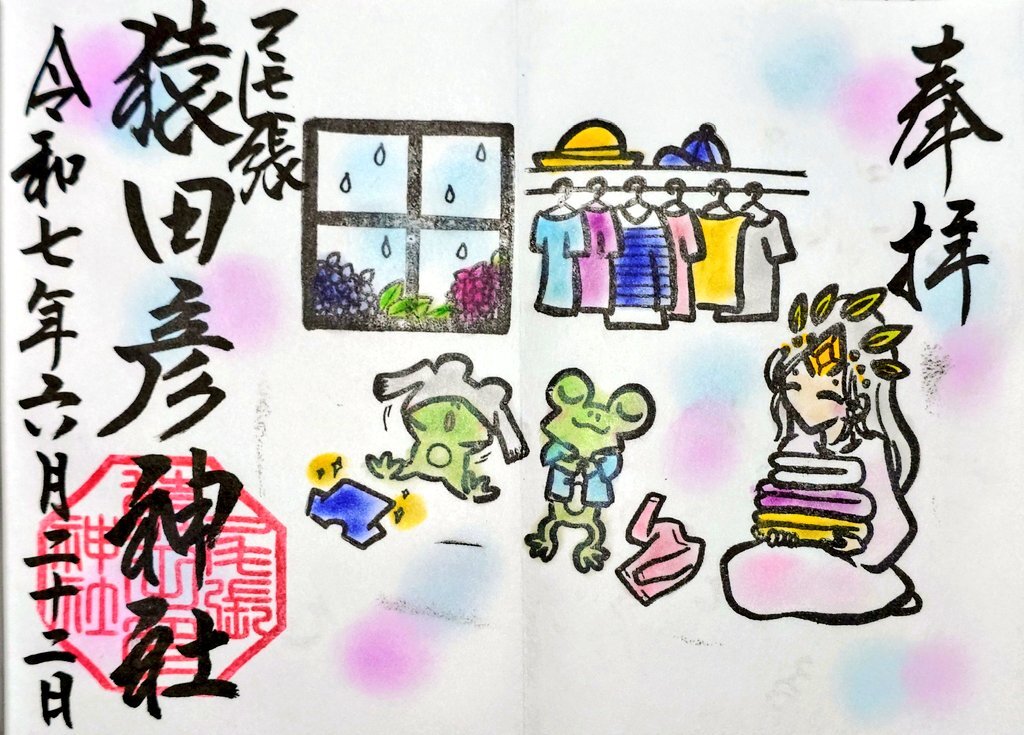 奉拝
尾張
猿田彦神社
令和七年六月二十二日
尾張
猿田彦
神社